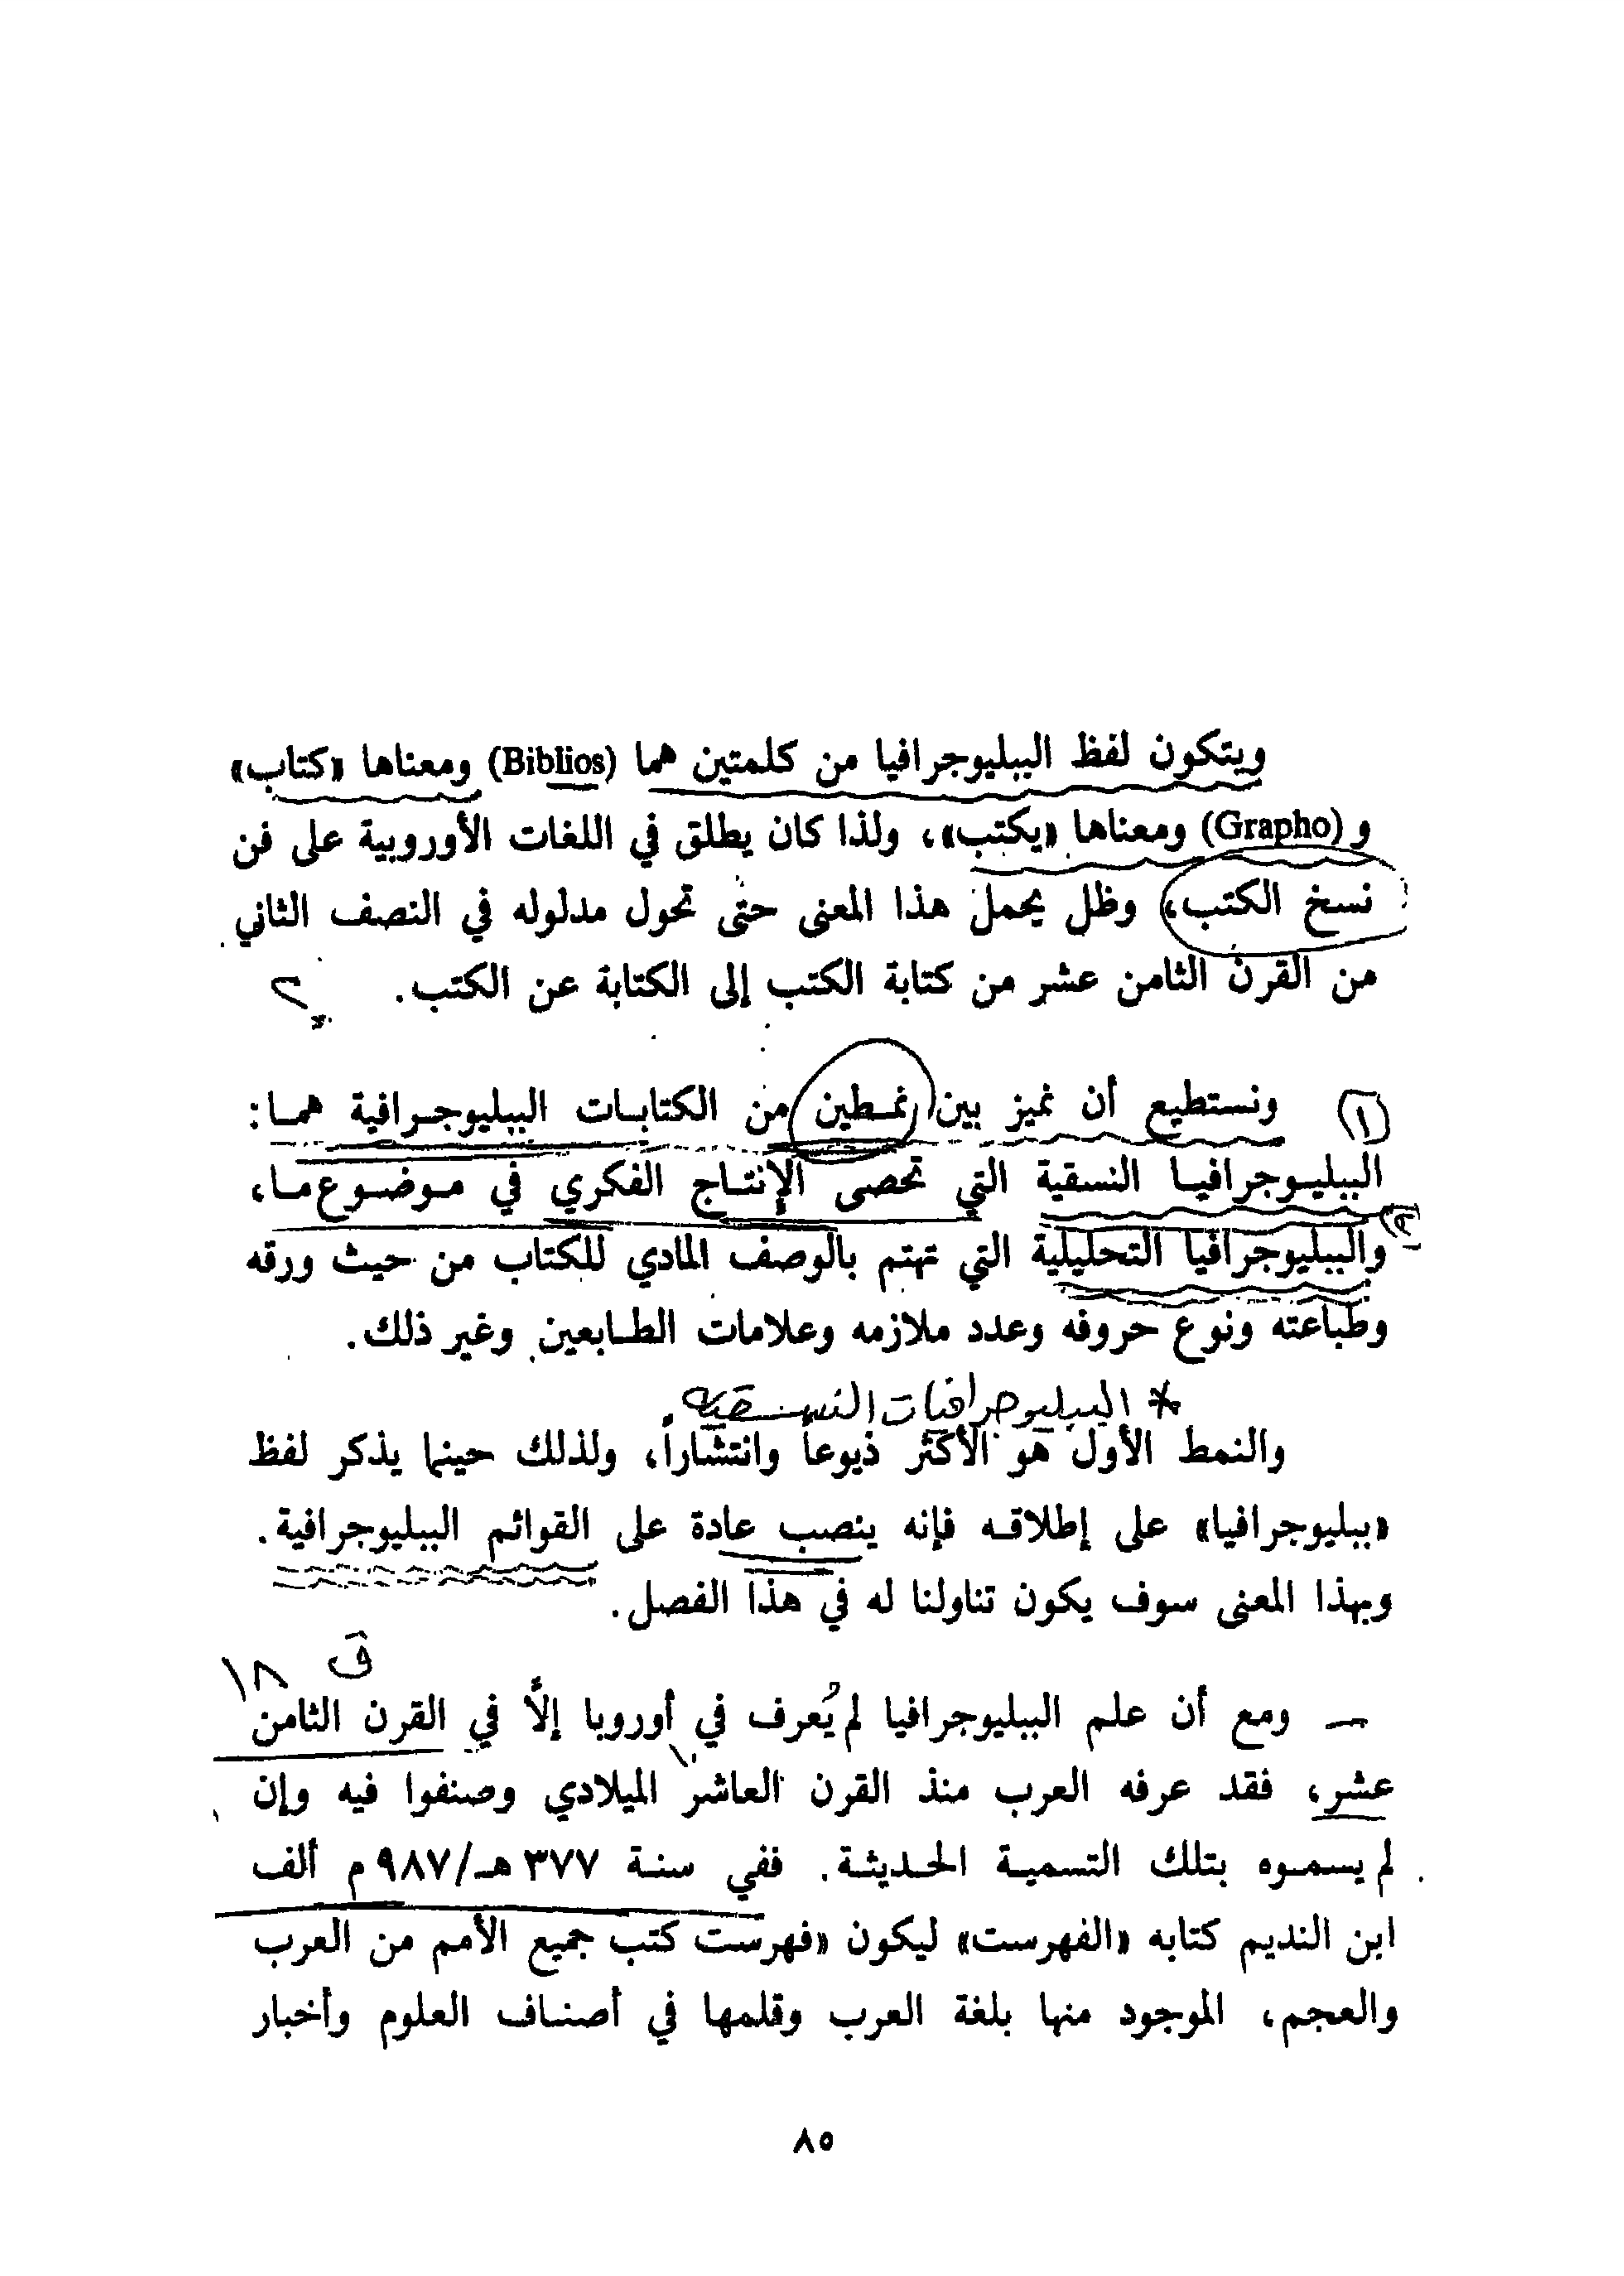 ويتكون لفظ الببليوجرافيا من كلمتين هما (Biblios) ومعناها «كتاب»
و (Grapho) ومعناها «يكتب»، ولذا كان يطلق في اللغات الأوروبية على فن
نسخ الكتب، وظل يحمل هذا المعنى حتى تحول مدلوله في النصف الثاني
من القرن الثامن عشر من كتابة الكتب إلى الكتابة عن الكتب.
(١) ونستطيع أن نميز بين نمطين من الكتابات الببليوجرافية هما:
الببليوجرافيا النسقية التي تحصى الإنتاج الفكري في موضوع ما،
(٢)
والببليوجرافيا التحليلية التي تهتم بالوصف المادي للكتاب من حيث ورقه
وطباعته ونوع حروفه وعدد ملازمه وعلامات الطابعين وغير ذلك.
* الببليوجرافيات النسقية
والنمط الأول هو الأكثر ذيوعاً وانتشاراً، ولذلك حينما يذكر لفظ
«ببليوجرافيا» على إطلاقه فإنه ينصب عادة على القوائم الببليوجرافية.
وبهذا المعنى سوف يكون تناولنا له في هذا الفصل.
ق ١٨
— ومع أن علم الببليوجرافيا لم يُعرف في أوروبا إلاَّ في القرن الثامن
١٠
عشر، فقد عرفه العرب منذ القرن العاشر الميلادي وصنفوا فيه وإن
لم يسموه بتلك التسمية الحديثة. ففي سنة ٣٧٧ هـ/٩٨٧ م ألف
ابن النديم كتابه «الفهرست» ليكون «فهرست كتب جميع الأمم من العرب
والعجم، الموجود منها بلغة العرب وقلمها في أصناف العلوم وأخبار
٨٥